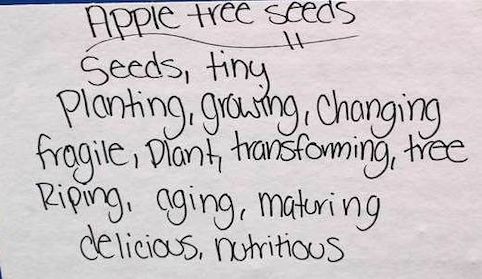 Apple tree seeds
Seeds, tiny
Planting, growing, Changing
fragile, Plant, transforming, tree
Riping, aging, maturing
delicious, nutritious